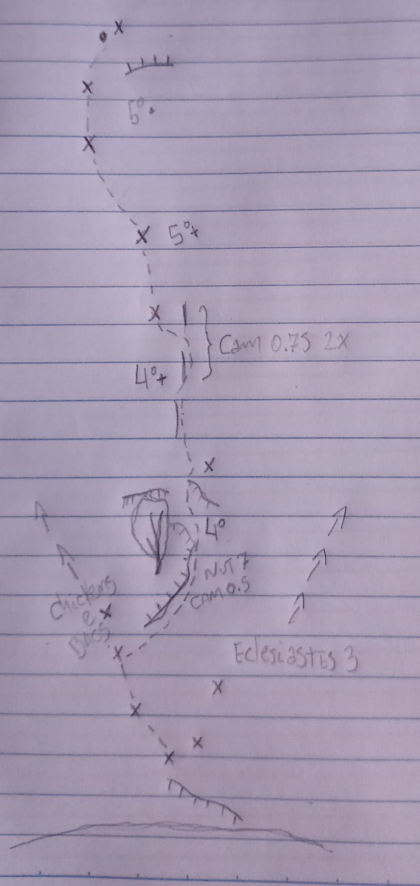 5º
5º+
Cam 0.75 2x
4º+
4º
NUT 7
CAM 0.5
Chickens
e
Eclesiastes 3